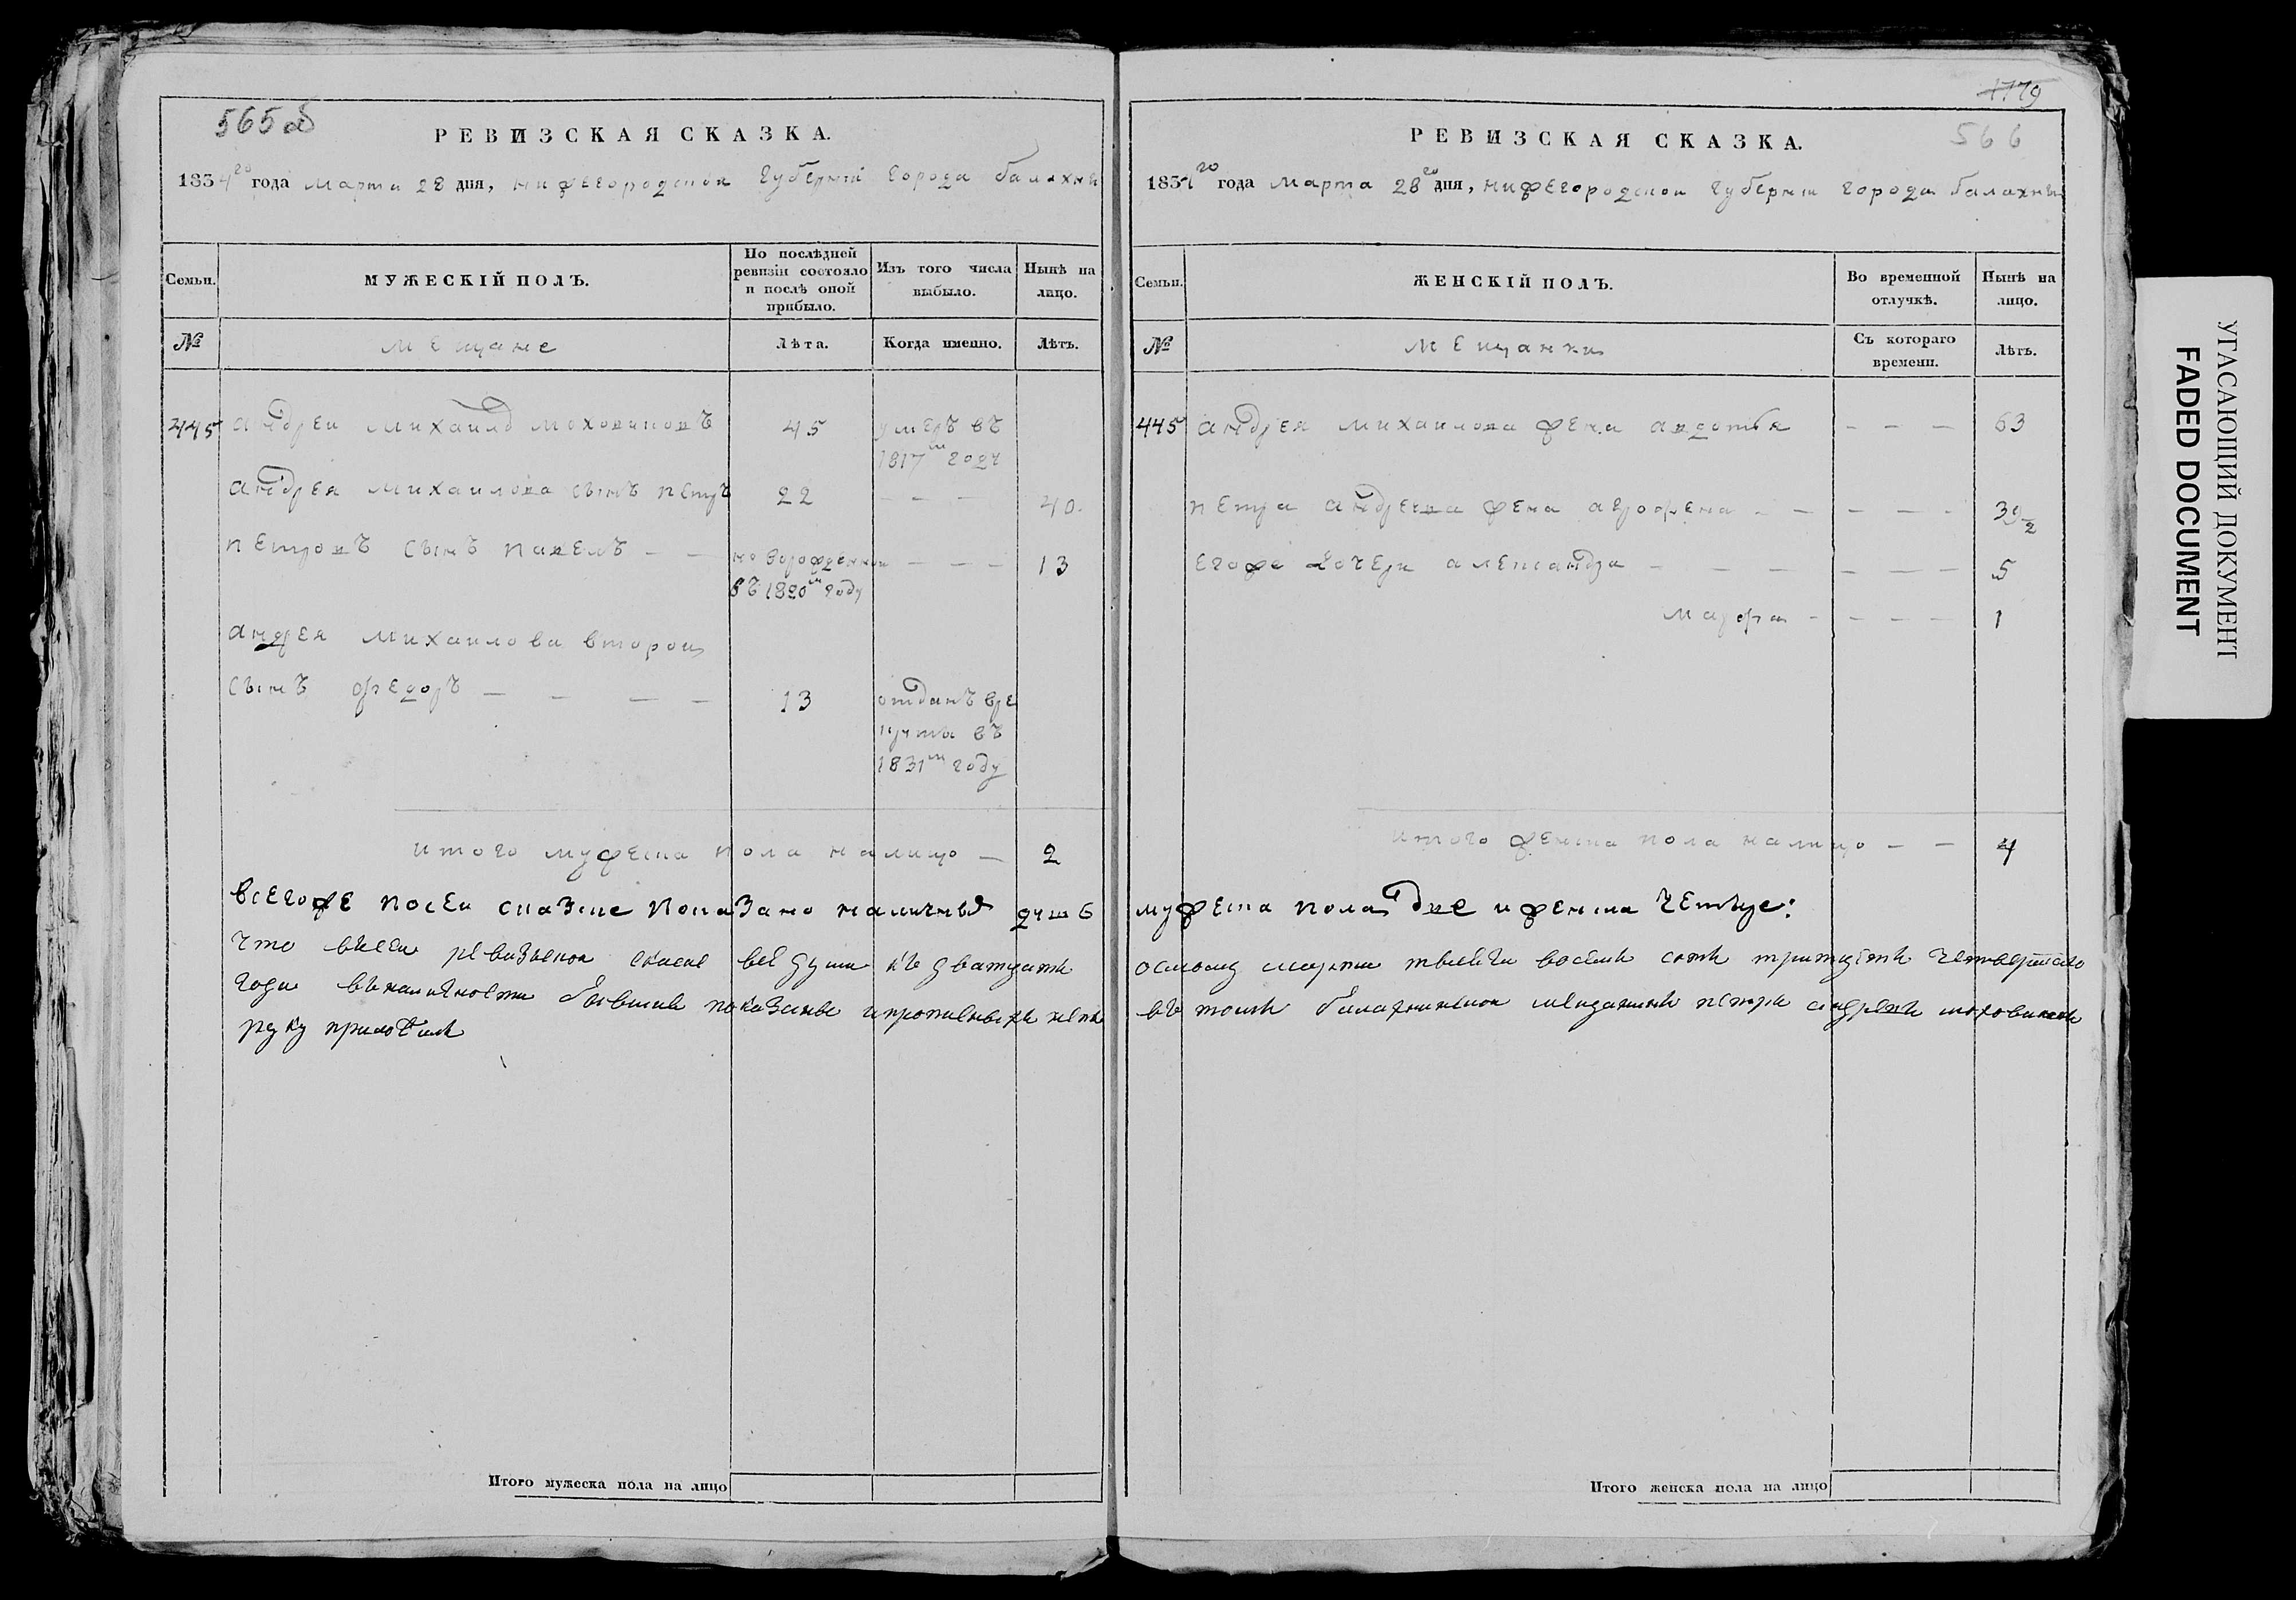 565 об
РЕВИЗСКАЯ СКАЗКА.
1834го года марта 28 дня, нижегородской Губерніи города балахни
Семьи. МУЖЕСКІЙ ПОЛЪ. По послѣдней ревизіи состояло и послѣ оной прибыло. Изъ того числа выбыло. Нынѣ на лицо.
№ мещане Лѣта. Когда именно. Лѣтъ.
445 андреи михаилд моховиковъ 45 умеръ въ
1817м году
андрея михаилова сынъ петръ 22 — — — 40.
петровъ сынъ павелъ — — новорожденнои — — — 13
въ 1820м году
андрея михаилова второи
сынъ федоръ — — — — 13 отданъ вре
круты въ
1831м году
итого мужеска пола налицо — 2
всегоже посеи сказке показано наличныя душ 6
что вьсеи ревизьскои скаске всё души къ дватцати
года въналичности бывшие показаны ипрописныхъ нетъ
руку приложилъ
1179
РЕВИЗСКАЯ СКАЗКА. 566
1834го года марта 28го дня, нижегородскои губерніи города балахни
Семьи. ЖЕНСКІЙ ПОЛЪ. Во временной отлучкѣ. Нынѣ на лицо.
№ мещанки Съ котораго времени. Лѣтъ.
445 андрея михаилова жена авдотья — — — 63
петра андреева жена агрофена — — — — — 39 1/2
егоже дочери александра — — — — — — 5
марфа — — — — 1
итого женска пола налицо — — 4
мужеска пола две и женска четыре:
осьмому марта тысечи восемь сотъ тритцать четвертаго
въ томъ балахнинскои мещанинъ петръ андреевъ моховиковъ
Итого мужеска пола на лицо
Итого женска пола на лицо
УГАСАЮЩИЙ ДОКУМЕНТ
FADED DOCUMENT